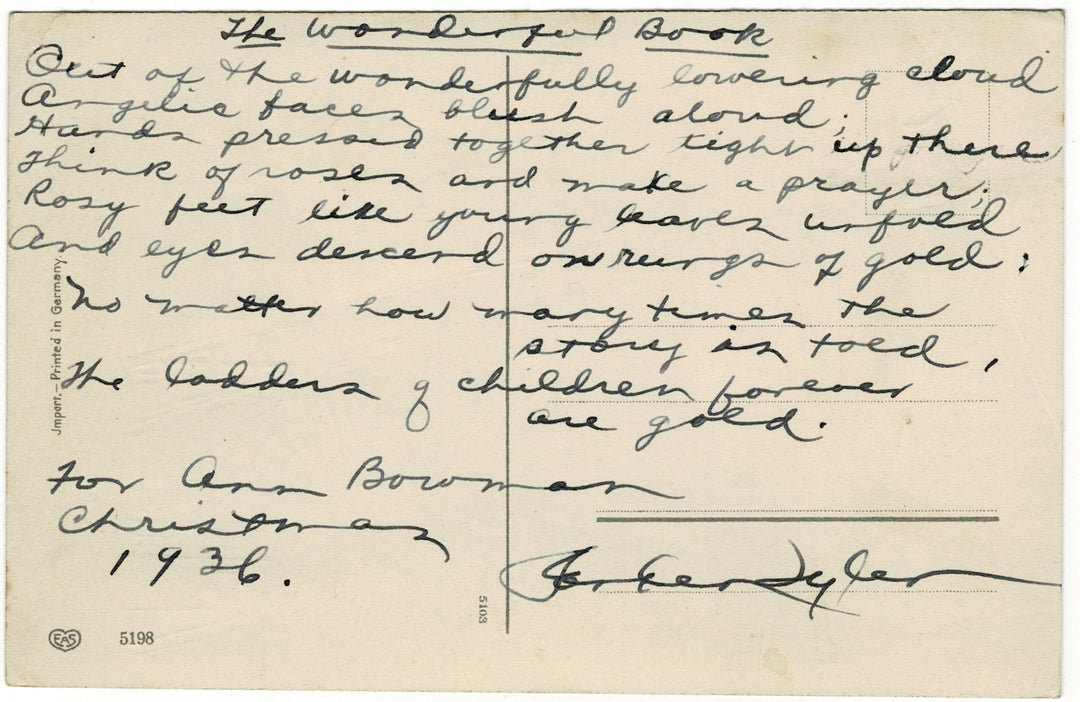 The Wonderful Book
Out of the wonderfully lowering cloud
Angelic faces blush aloud;
Hands pressed together tight up there
Think of roses and make a prayer;
Rosy feet like young leaves unfold
And eyes descend on rungs of gold:
No matter how many times the
story is told,
The ladders of children forever
are gold.
For Ann Bowman
Christmas
1936.
Parker Tyler
Jmport.—Printed in Germany.
EAS
5198
5103